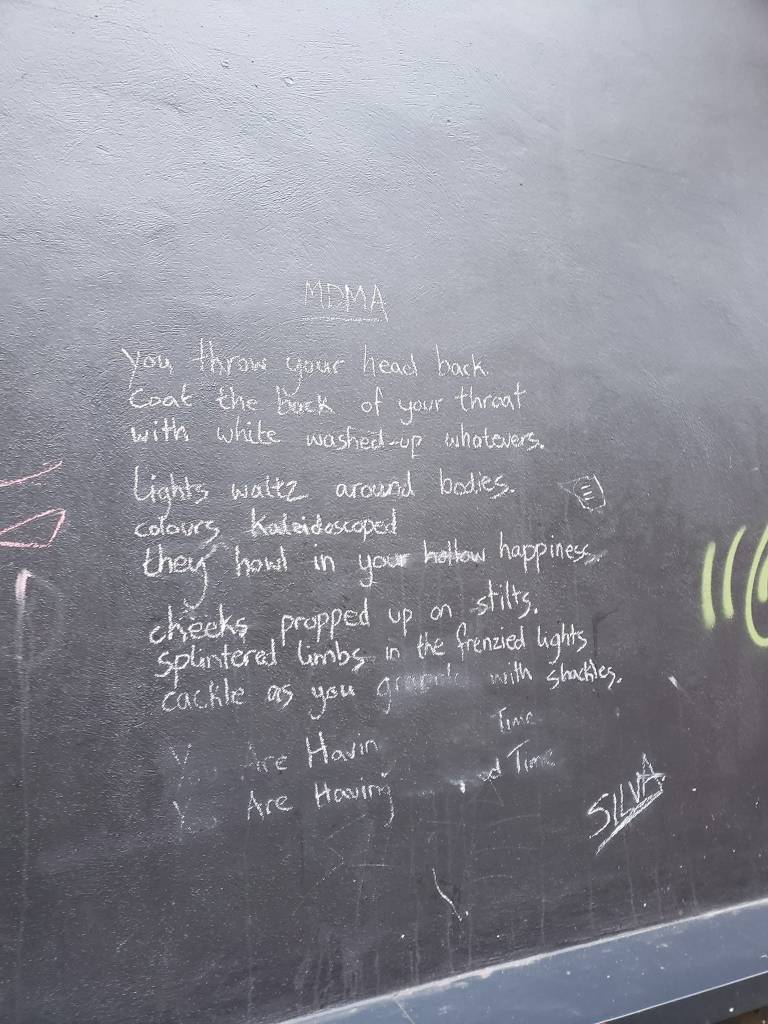 MDMA
you throw your head back.
Coat the back of your throat
with white washed-up whatevers.
Lights waltz around bodies.
colours Kaleidoscoped
they howl in your hollow happiness.
cheeks propped up on stilts.
splintered limbs in the frenzied lights
cackle as you with shackles.
Are Havin Time
Are Having Time
SILVA